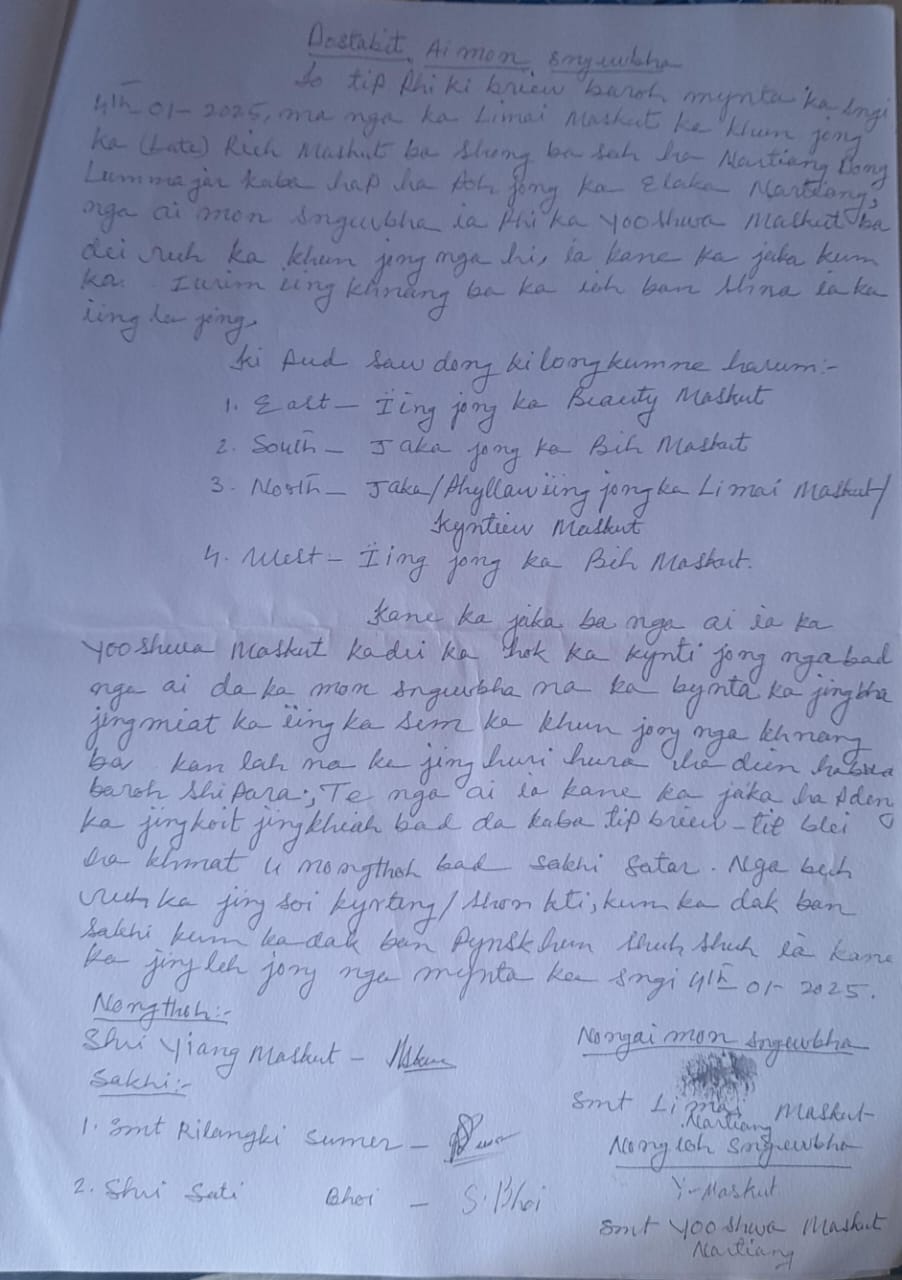 Dostabit Ai mon sngewbha
Io tip phi ki briew baroh mynta ka sngi
4th-01-2025, ma nga ka Limai Maskut ka khun jong
ka (Late) Rich Maskut ba shong ba sah ha Nartiang Dong
Lummajar kaba hap ha poh jong ka Elaka Nartiang,
nga ai mon sngewbha ia phi ka Yooshwa Maskut ba
dei ruh ka khun jong nga hi, ia kane ka jaka kum
ka Iurim iing khnang ba ka ioh ban shna ia ka
iing la jong.
Ki pud sawdong ki long kumne harum:-
1. East - Ïing jong ka Beauty Maskut
2. South - Jaka jong ka Bih Maskut
3. North - Jaka/Phyllaw iing jong ka Limai Maskut/
Kyntiew Maskut
4. West - Ïing jong ka Bih Maskut.
Kane ka jaka ba nga ai ia ka
Yooshwa Maskut ka dei ka hok ka kynti jong nga bad
nga ai da ka mon sngewbha na ka bynta ka jingbha
jingmiat ka iing ka sem ka khun jong nga khnang
ba kan lah na ka jing huri hura ha dien habud
baroh shi para., Te nga ai ia kane ka jaka ha pdeng
ka jingkoit jingkhiah bad da kaba tip briew-tip blei
ha khmat u nongthoh bad sakhi satar. Nga buh
ruh ka jing soi kyrteng/shon kti, kum ka dak ban
sakhi kum ka dak ban pynskhem shuh shuh ia kane
ka jingleh jong nga mynta ka sngi 4th 01-2025.
Nongthoh:-
Shri Yiang Maskut -
Sakhi:-
1. Smt Rilangki Sumer -
2. Shri Suti Bhoi - S. Bhoi
Nongai mon sngewbha
Smt Limai Maskut
Nartiang
Nongioh Sngewbha
Y-Maskut
Smt Yooshwa Maskut
Nartiang